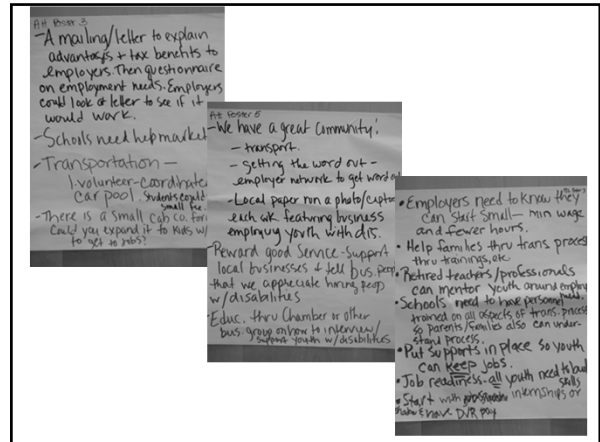 Att Poster 3
-A mailing/letter to explain
advantages + tax benefits to
employers. Then questionnaire
on employment needs. Employers
could look at letter to see if it
would work.
-Schools need help market
-Transportation -
1. volunteer-coordinate
car pool. Students could
small fee.
-There is a small cab co. for
Could you expand it to kids w/
to get to jobs?
Att Poster 5
-We have a great Community!
- transport.
- getting the word out -
employer network to get word out
-Local paper run a photo/caption
each wk featuring business
employing youth with dis.
-Reward good service-support
local businesses & tell bus. people
that we appreciate hiring peop
w/disabilities
-Educ. thru Chamber or other
bus. group on how to interview/
support youth w/disabilities
• Employers need to know they
can start small- min wage
and fewer hours.
• Help families thru trans process
thru trainings, etc.
• Retired teachers/professionals
can mentor youth around employ
• Schools need to have personnel
trained on all aspects of trans. process
so parents/families also can under-
stand process.
• Put supports in place so youth
can keep jobs.
• Job readiness-all youth need to build
skills
• Start with internships or
& have DVR pay